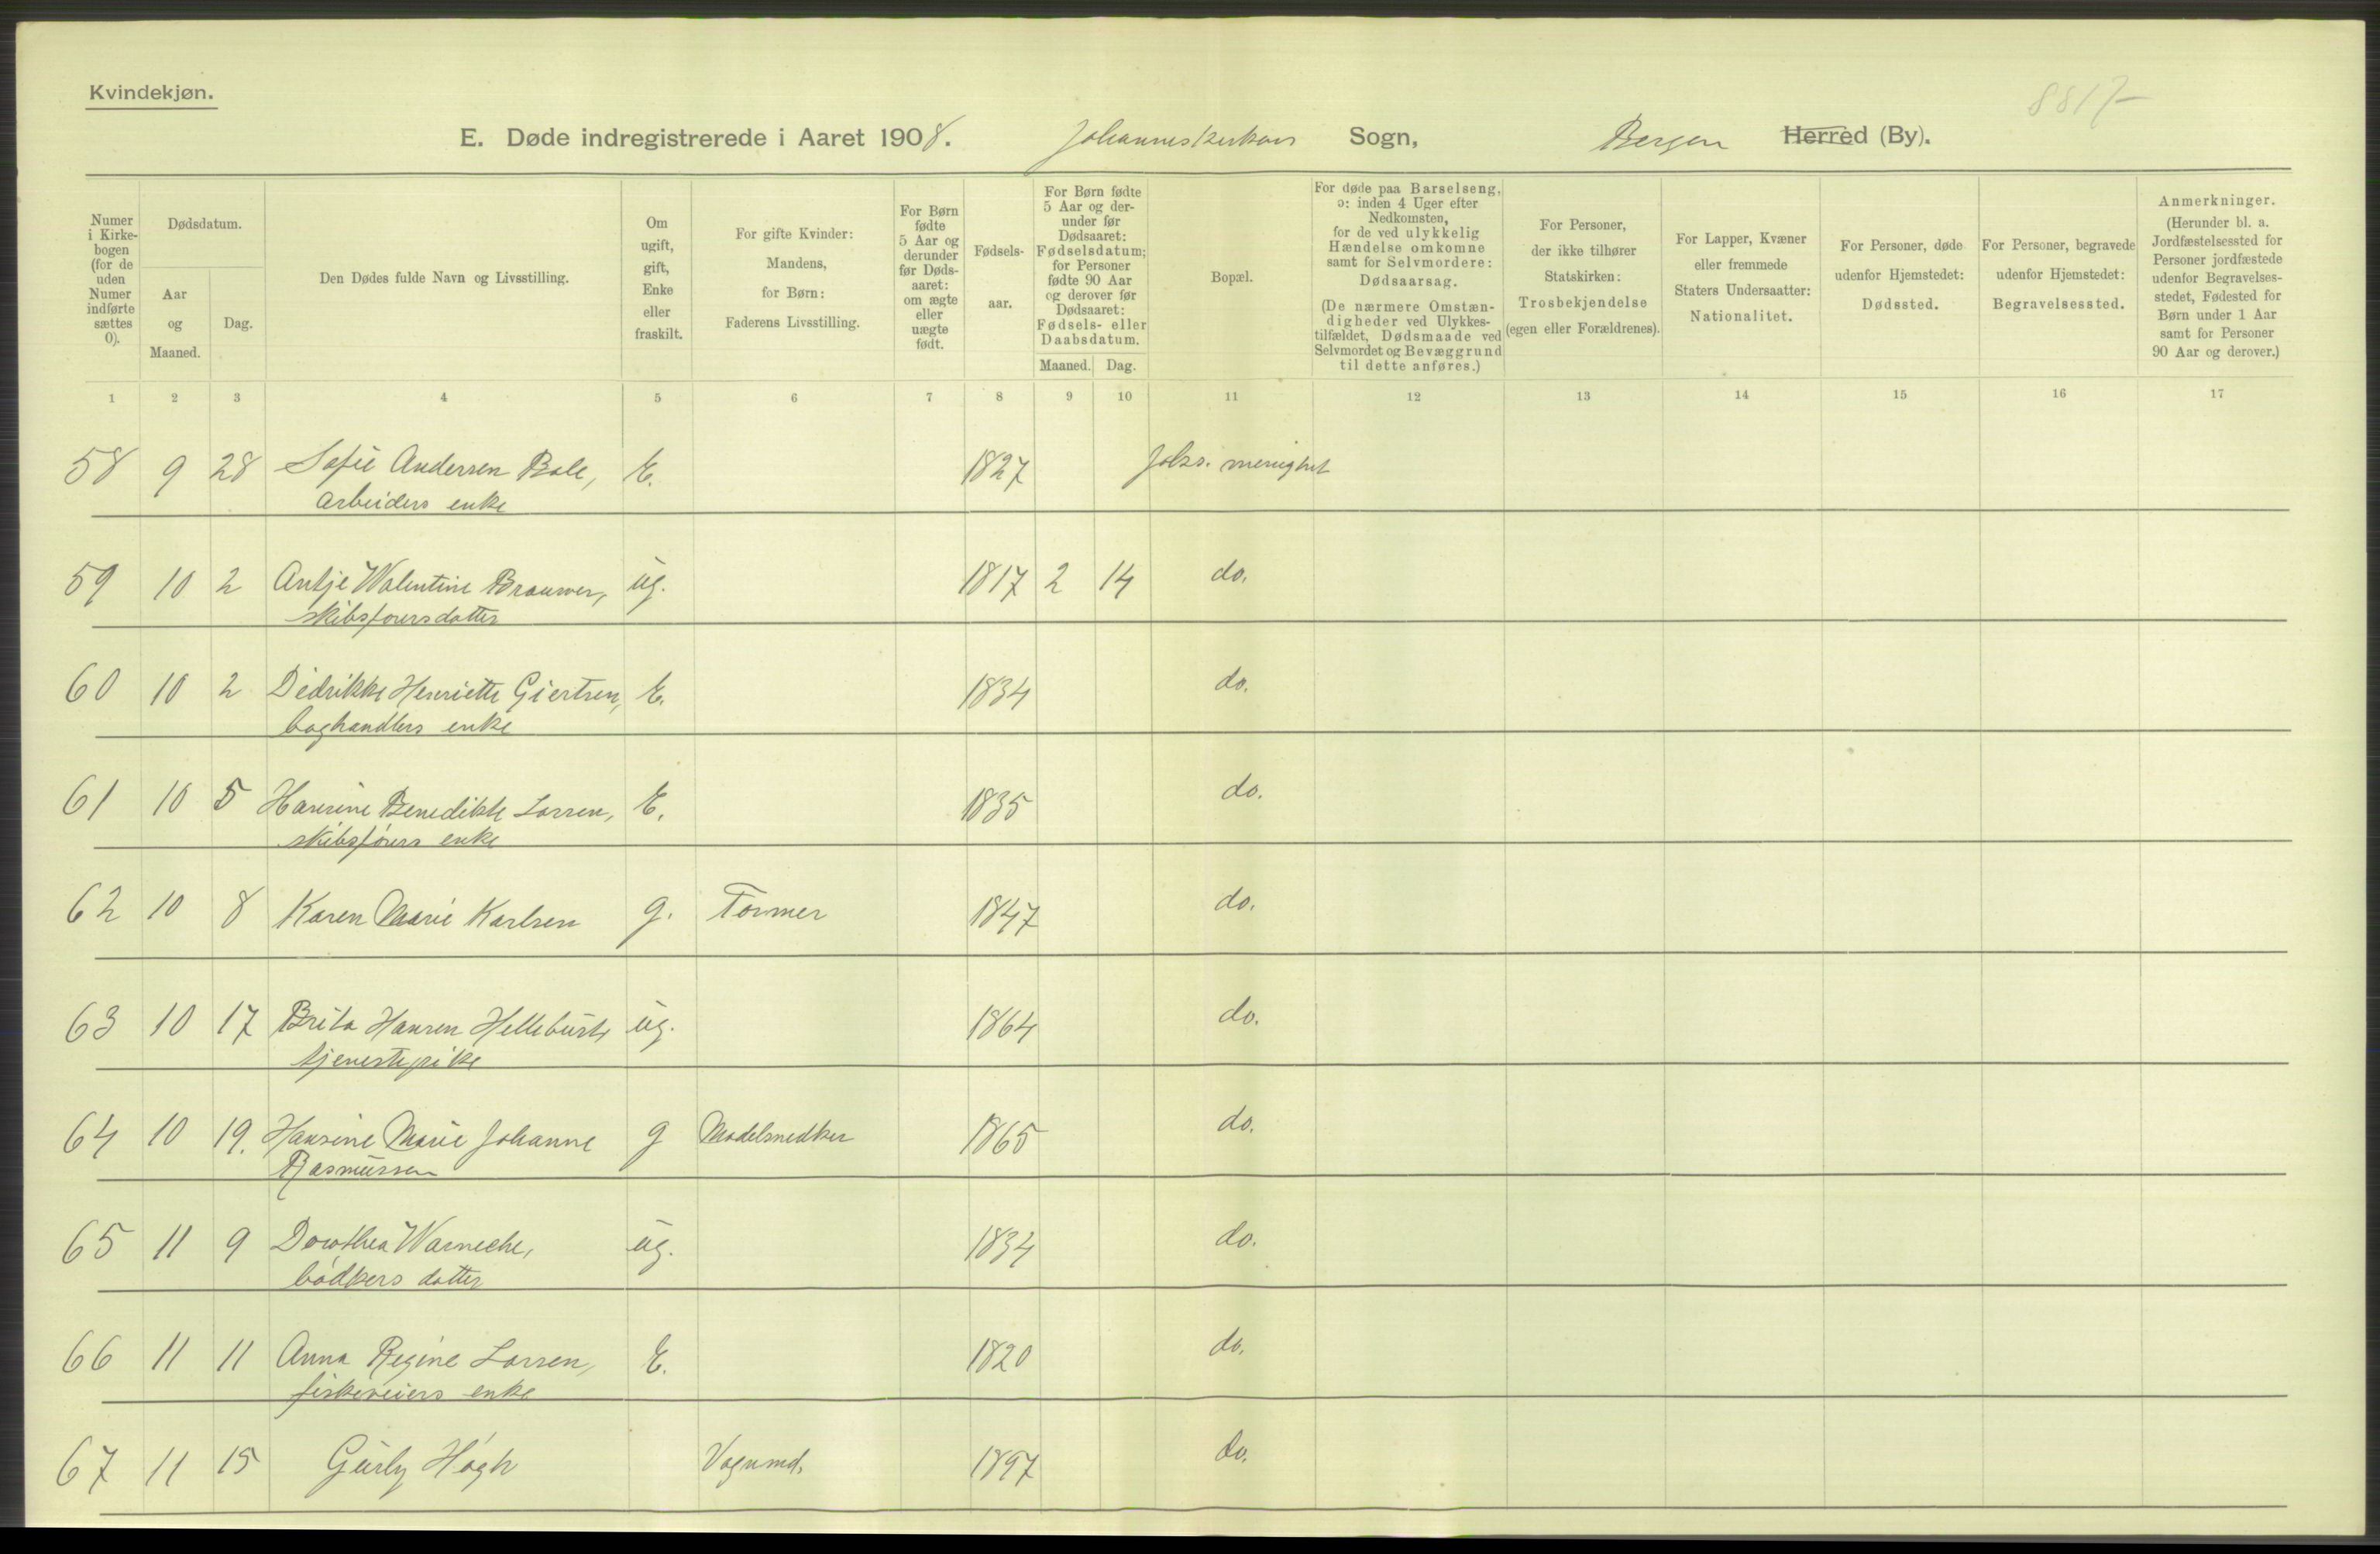 Kvindekjøn.
8817
E. Døde indregistrerede i Aaret 1908. Johanneskirkens Sogn, Bergen Herred (By).
Numer i Kirkebogen (for de uden Numer indførte sættes 0).
Dødsdatum.
Aar og Maaned.
Dag.
Den Dødes fulde Navn og Livsstilling.
Om ugift, gift, Enke eller fraskilt.
For gifte Kvinder: Mandens, for Børn: Faderens Livsstilling.
For Børn fødte 5 Aar og derunder før Dødsaaret: om ægte eller uægte født.
Fødselsaar.
For Børn fødte 5 Aar og derunder før Dødsaaret: Fødselsdatum; for Personer fødte 90 Aar og derover før Dødsaaret: Fødsels- eller Daabsdatum.
Maaned. Dag.
Bopæl.
For døde paa Barselseng, ɔ: inden 4 Uger efter Nedkomsten, for de ved ulykkelig Hændelse omkomne samt for Selvmordere: Dødsaarsag. (De nærmere Omstændigheder ved Ulykkestilfældet, Dødsmaade ved Selvmordet og Bevæggrund til dette anføres.)
For Personer, der ikke tilhører Statskirken: Trosbekjendelse (egen eller Forældrenes).
For Lapper, Kvæner eller fremmede Staters Undersaatter: Nationalitet.
For Personer, døde udenfor Hjemstedet: Dødssted.
For Personer, begravede udenfor Hjemstedet: Begravelsessted.
Anmerkninger. (Herunder bl. a. Jordfæstelsessted for Personer jordfæstede udenfor Begravelsesstedet, Fødested for Børn under 1 Aar samt for Personer 90 Aar og derover.)
1 2 3 4 5 6 7 8 9 10 11 12 13 14 15 16 17
58 9 28 Sofie Andersen Bale, E. 1827 Johs. menighet
arbeiders enke
59 10 2 Antje Walentine Brouwer, ug. 1817 2 14 do.
skibsførersdatter
60 10 2 Didrikke Henriette Giertsen, E. 1834 do.
boghandlers enke
61 10 5 Hansine Benedikte Larsen, E. 1835 do.
skibsførers enke
62 10 8 Karen Marie Karlsen g. Former 1847 do.
63 10 17 Brita Hansen Hellebust, ug. 1864 do.
tjenestepike
64 10 19. Hansine Marie Johanne g Modelsnedker 1865 do.
Rasmussen
65 11 9 Dorothea Warneche, ug. 1834 do.
bødkers datter
66 11 11 Anna Regine Larsen, E. 1820 do.
fiskeveiers enke
67 11 15 Gurly Høgh Vognmd. 1897 do.